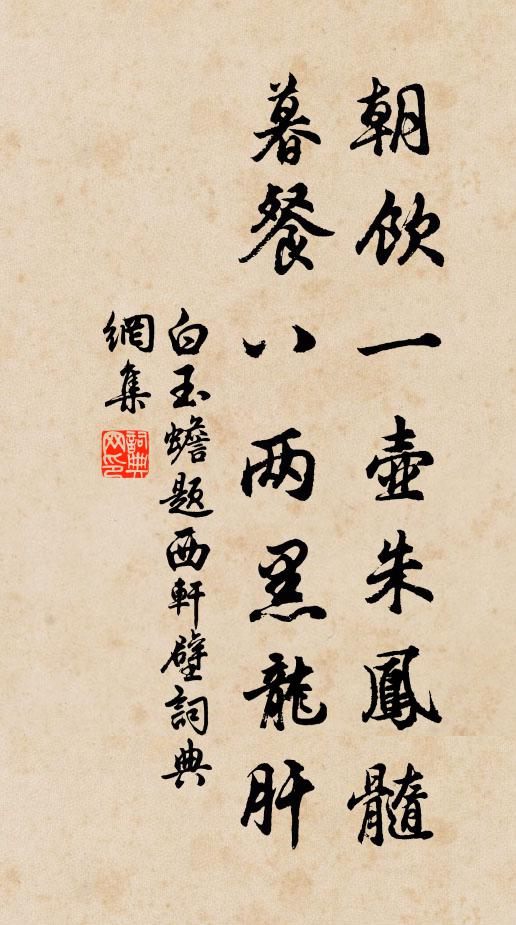 朝飲一壺朱鳳髓
暮餐八两黑龍肝
白玉蟾題西軒壁詞典
網集
詞典网印